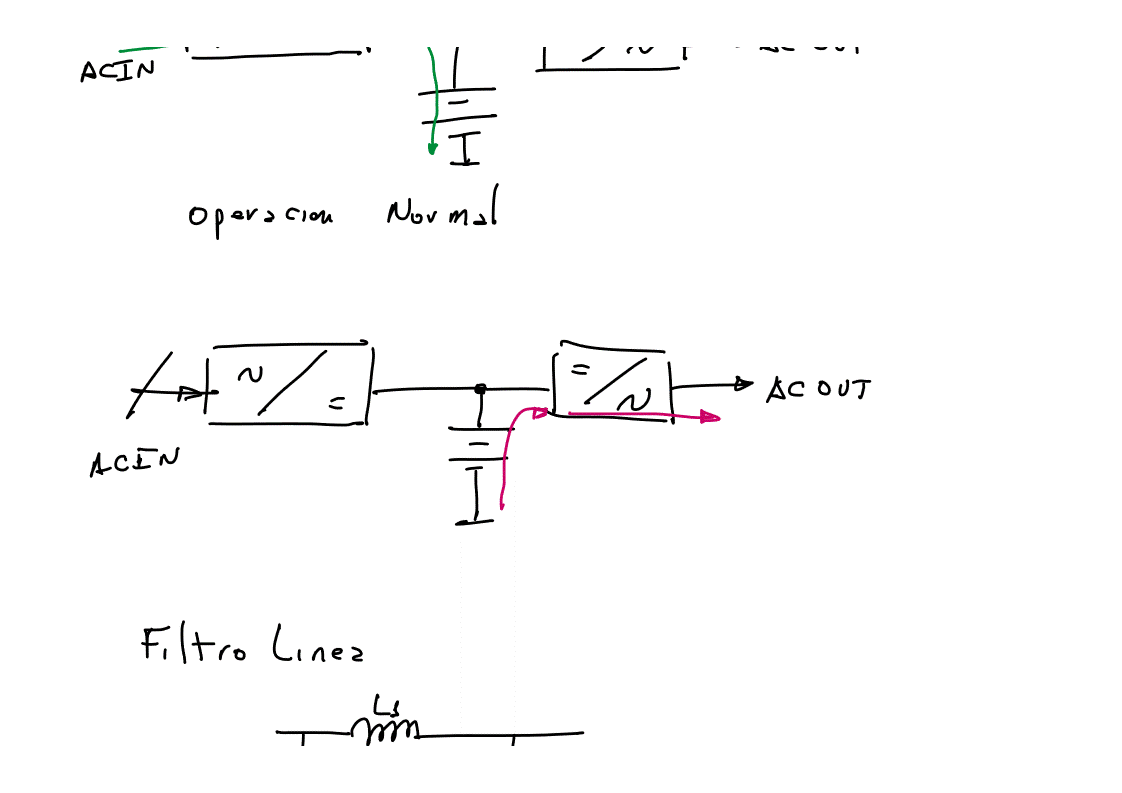 ACIN
AC OUT
Operacion Normal
AC OUT
ACIN
Filtro Linea
Ls